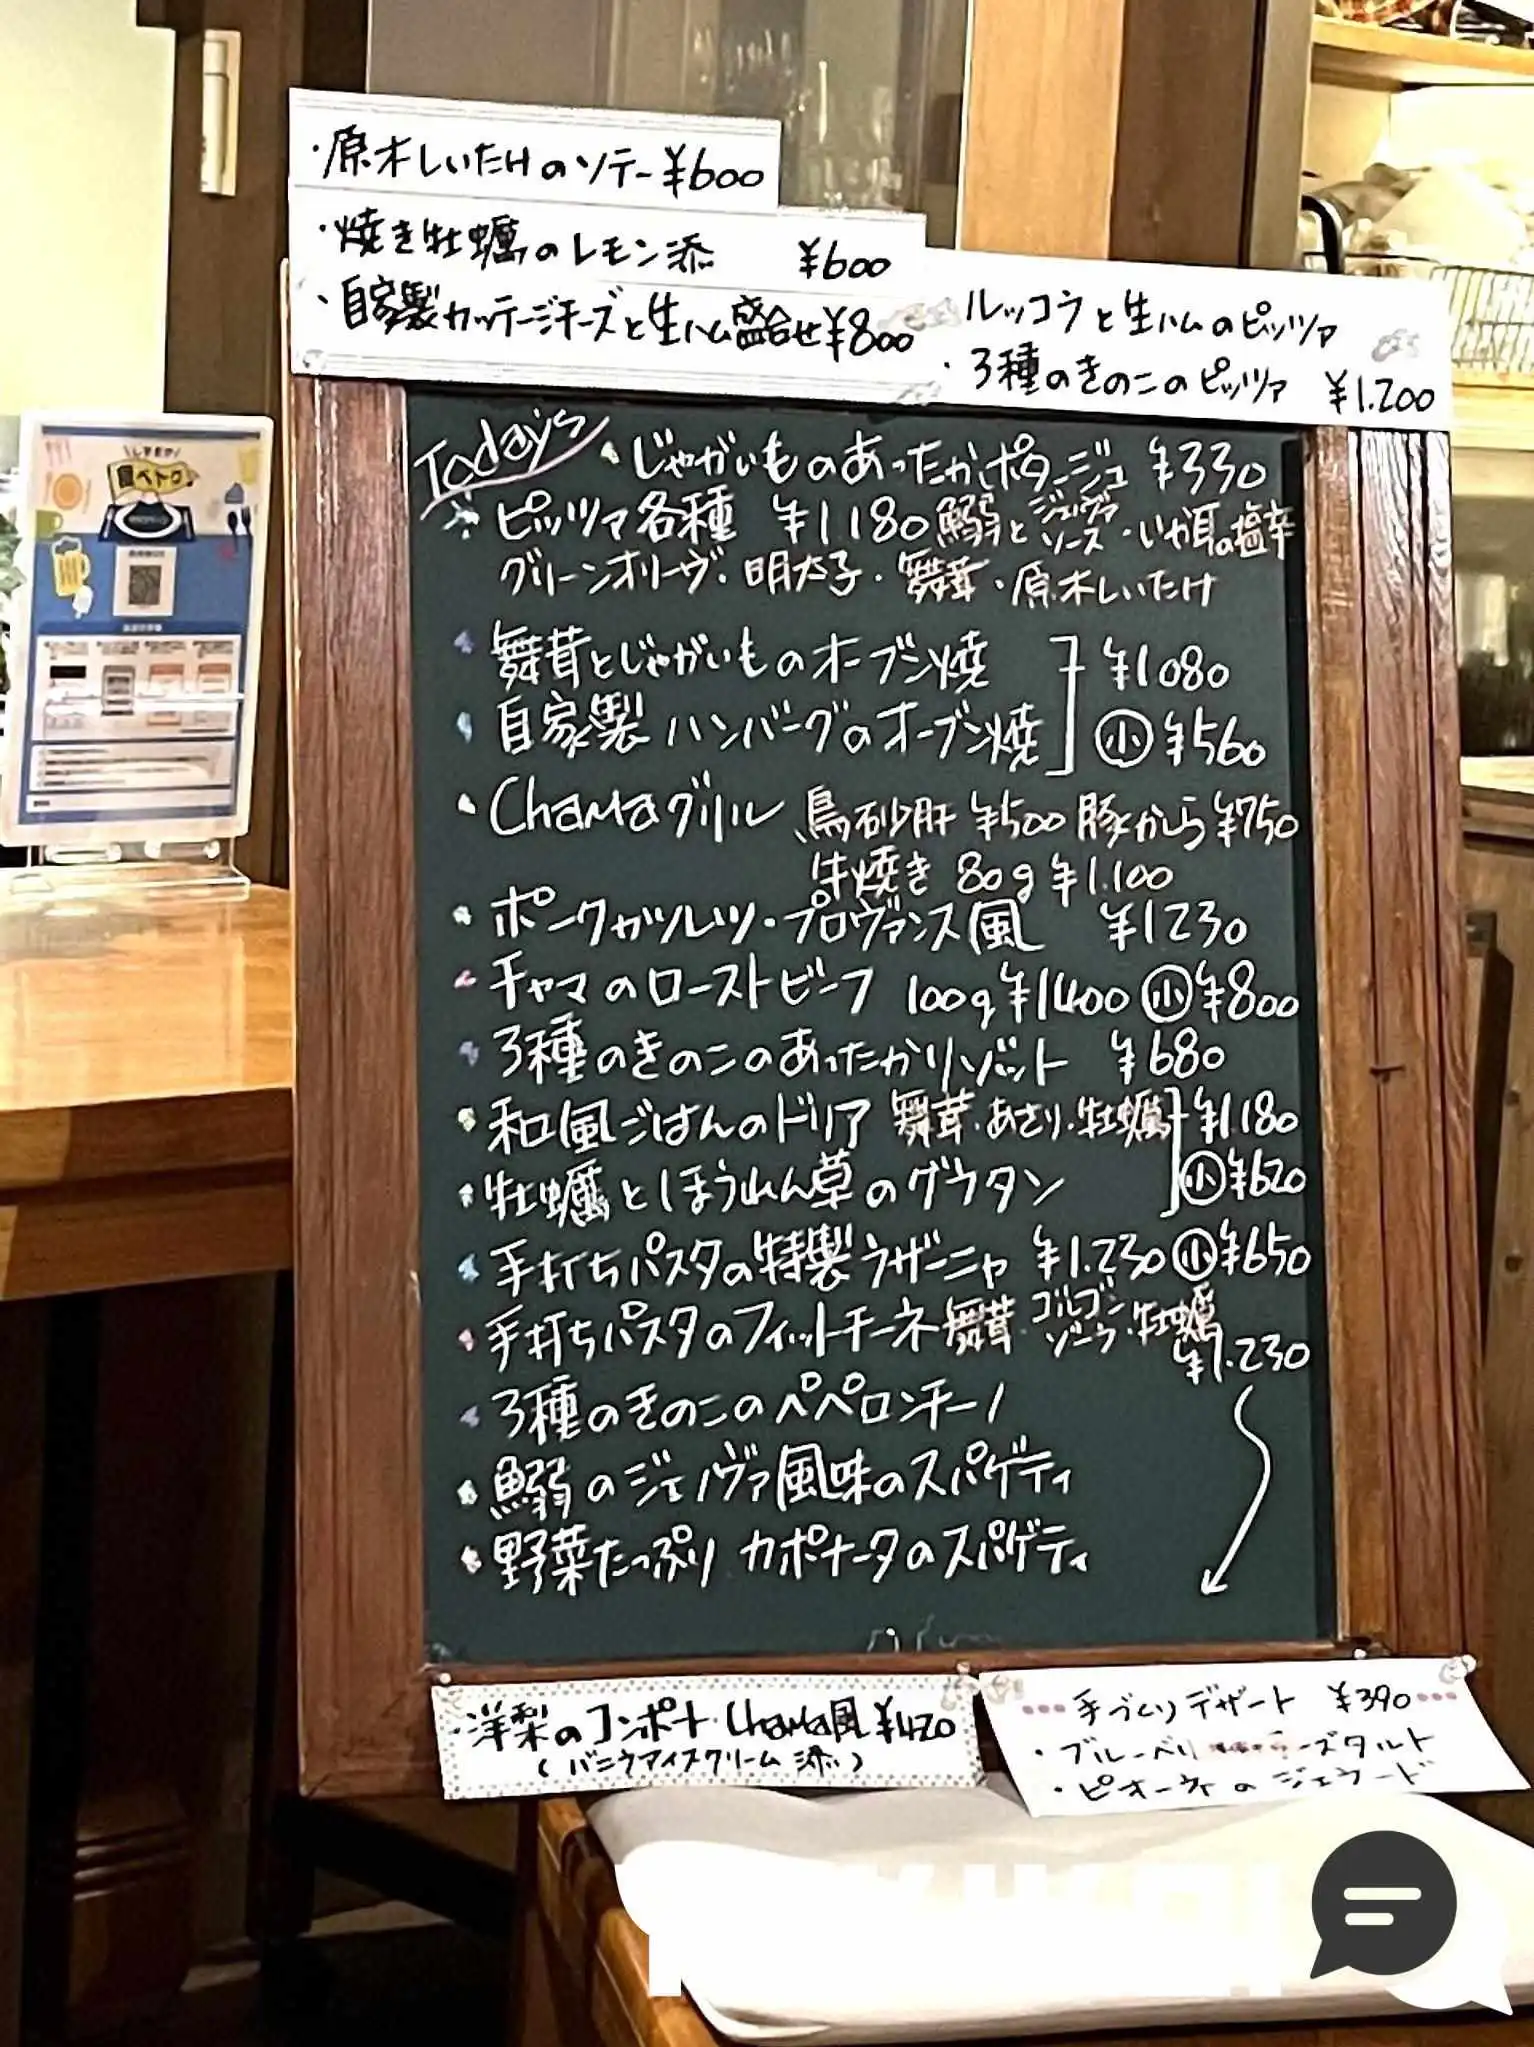 ・原木しいたけのソテー ¥600
・焼き牡蠣のレモン添 ¥600
・自家製カッテージチーズと生ハム盛合せ ¥800
ルッコラと生ハムのピッツァ
・3種のきのこのピッツァ ¥1.200
Today's ・じゃがいものあったかポタージュ ¥330
・ピッツァ各種 ¥1180 鰯とジェノヴァソース・いか耳の塩辛
グリーンオリーヴ・明太子・舞茸・原木しいたけ
・舞茸とじゃがいものオーブン焼 ¥1080
・自家製ハンバーグのオーブン焼 小 ¥560
・Chamaグリル 鳥砂肝 ¥500 豚かしら ¥750
牛焼き 80g ¥1.100
・ポークカツレツ・プロヴァンス風 ¥1230
・チャマのローストビーフ 100g ¥1400 小 ¥800
・3種のきのこのあったかリゾット ¥680
・和風ごはんのドリア 舞茸・あさり・牡蠣 ¥1.180
・牡蠣とほうれん草のグラタン 小 ¥620
・手打ちパスタの特製ラザーニャ ¥1.230 小 ¥650
・手打ちパスタのフィットチーネ 舞茸・ゴルゴンゾーラ・牡蠣
¥1.230
・3種のきのこのペペロンチーノ
・鰯のジェノヴァ風味のスパゲティ
・野菜たっぷりカポナータのスパゲティ
・洋梨のコンポート Chama風 ¥420
(バニラアイスクリーム添)
手づくりデザート ¥390
・ブルーベリーチーズタルト
・ピオーネのジェラード
食べトク